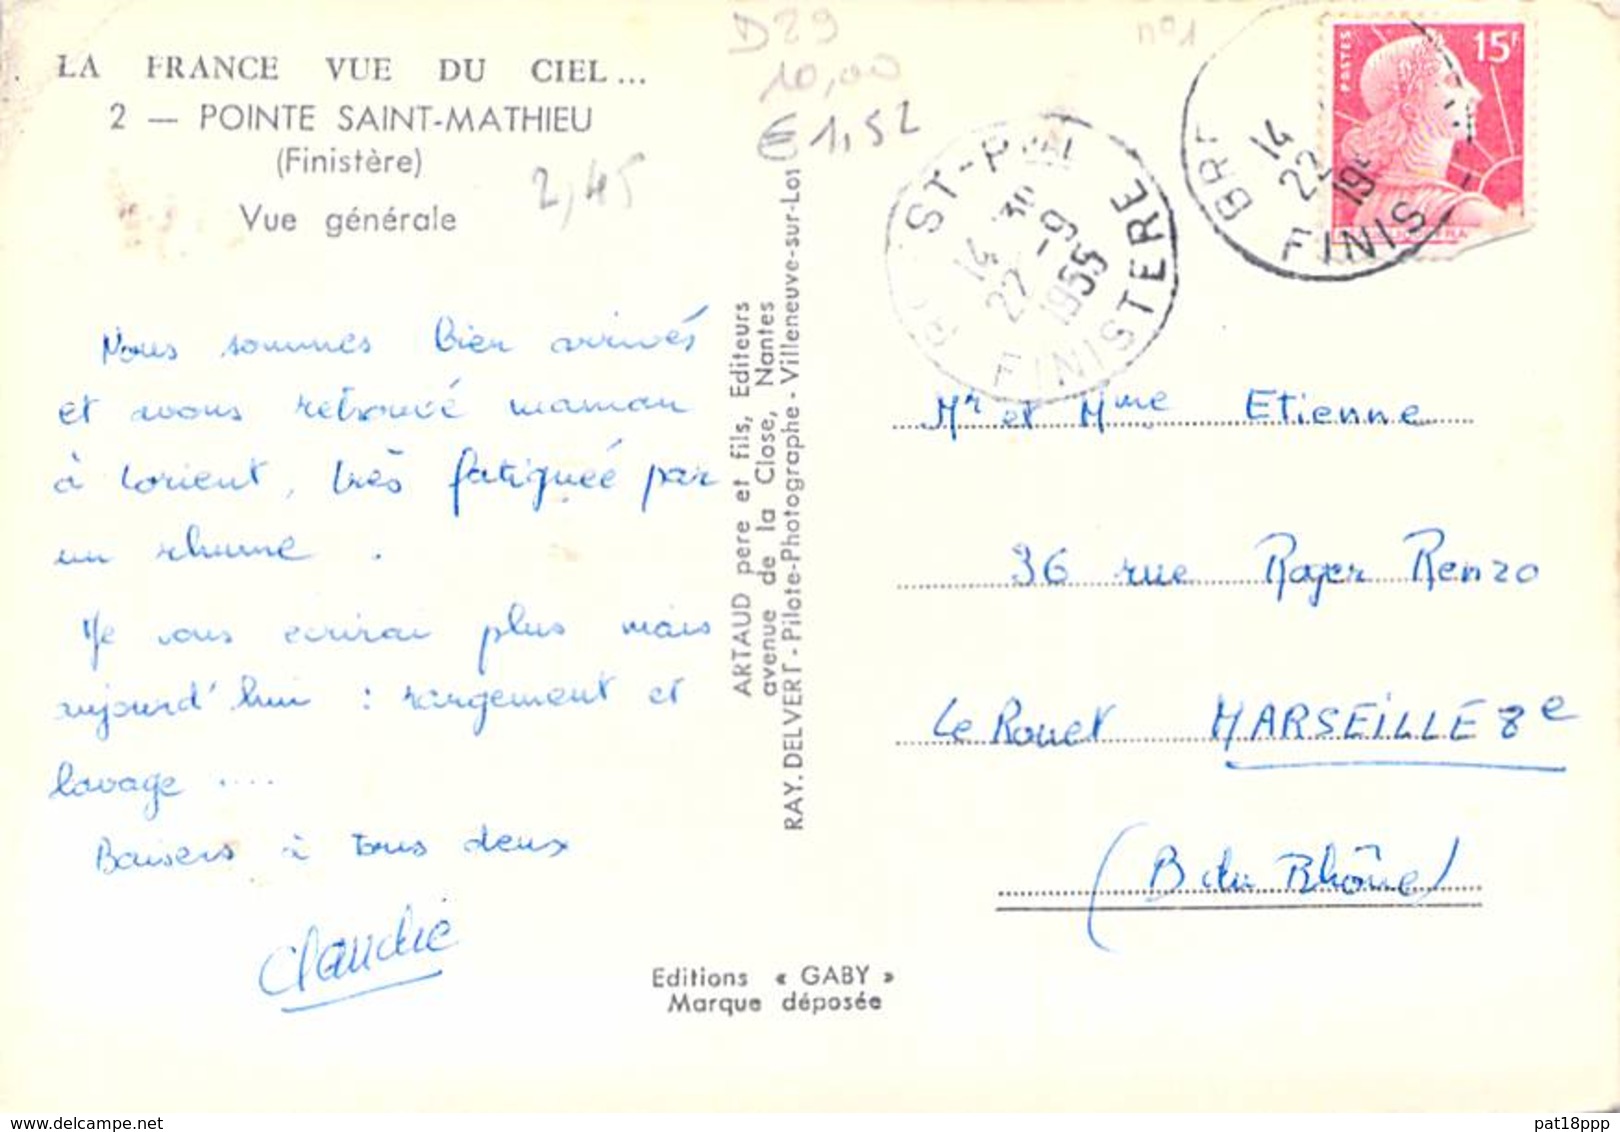 LA FRANCE VUE DU CIEL...
2 — POINTE SAINT-MATHIEU
(Finistère)
Vue générale
2,45
D29
10,00
€ 1,52
n° 1
Nous sommes bien arrivés
et avons retrouvé maman
à Lorient, très fatiguée par
un rhume.
Je vous écrirai plus mais
aujourd'hui : rangement et
lavage ....
Baisers à tous deux
Claudie
ARTAUD père et fils, Editeurs
avenue de la Close, Nantes
RAY. DELVERT - Pilote-Photographe - Villeneuve-sur-Lot
Editions « GABY »
Marque déposée
ST-P
14 30
22 -9
1955
FINISTERE
BR
14
22
19
FINIS
POSTES
15F
Mr et Mme Etienne
36 rue Roger Renzo
Le Rouet MARSEILLE 8e
(B du Rhône)
pat18ppp